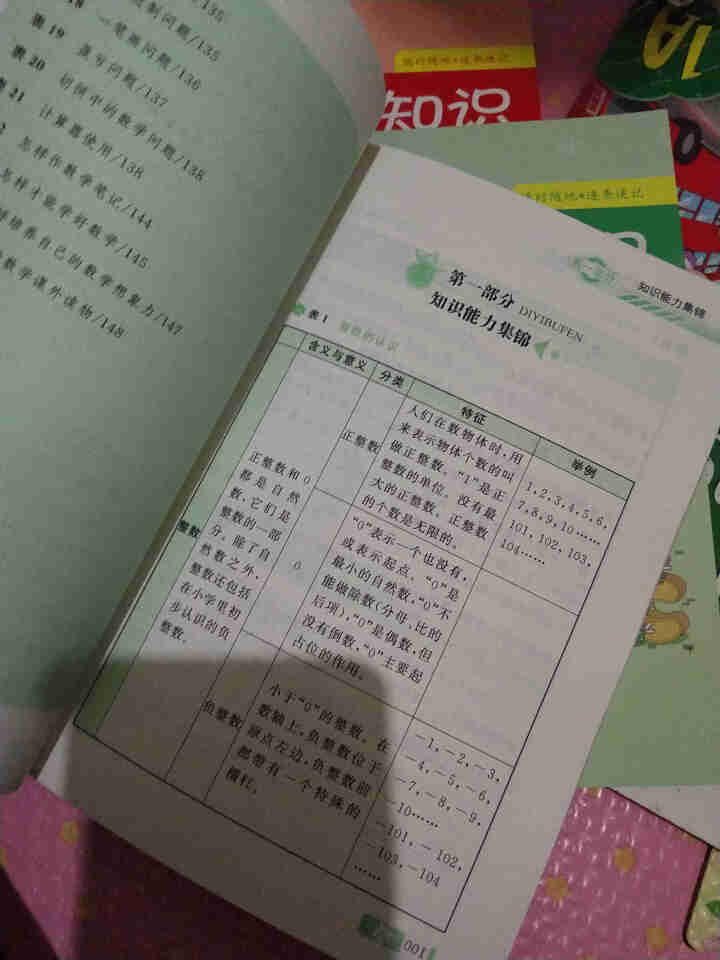 制问题/135
18 一笔画问题/136
表19 盈亏问题/137
表20 初创中的数学问题/138
表21 计算器使用/138
怎样作数学笔记/144
怎样才能学好数学/145
培养自己的数学想象力/147
数学课外读物/148
随时随地 速查速记
知识
随时随地 速查速记
1A
知识能力集锦
第一部分
DIYIBUFEN
知识能力集锦
表1 整数的认识
含义与意义
分类
特征
举例
整数
正整数和0
都是自然
数,它们是
整数的一部
分。除了自
然数之外,
整数还包括
在小学里初
步认识的负
整数。
正整数
人们在数物体时,用
来表示物体个数的叫
做正整数。“1”是正
整数的单位。没有最
大的正整数。正整数
的个数是无限的。
1,2,3,4,5,6,
7,8,9,10……
101,102,103,
104……
0
“0”表示一个也没有,
或表示起点。“0”是
最小的自然数,“0”不
能做除数(分母、比的
后项),“0”是偶数,但
没有倒数,“0”主要起
占位的作用。
负整数
小于“0”的整数。在
数轴上,负整数位于
原点左边,负整数前
都带有一个特殊的
横杠。
-1,-2,-3,
-4,-5,-6,
-7,-8,-9,
-10……
-101,-102,
-103,-104
……
001